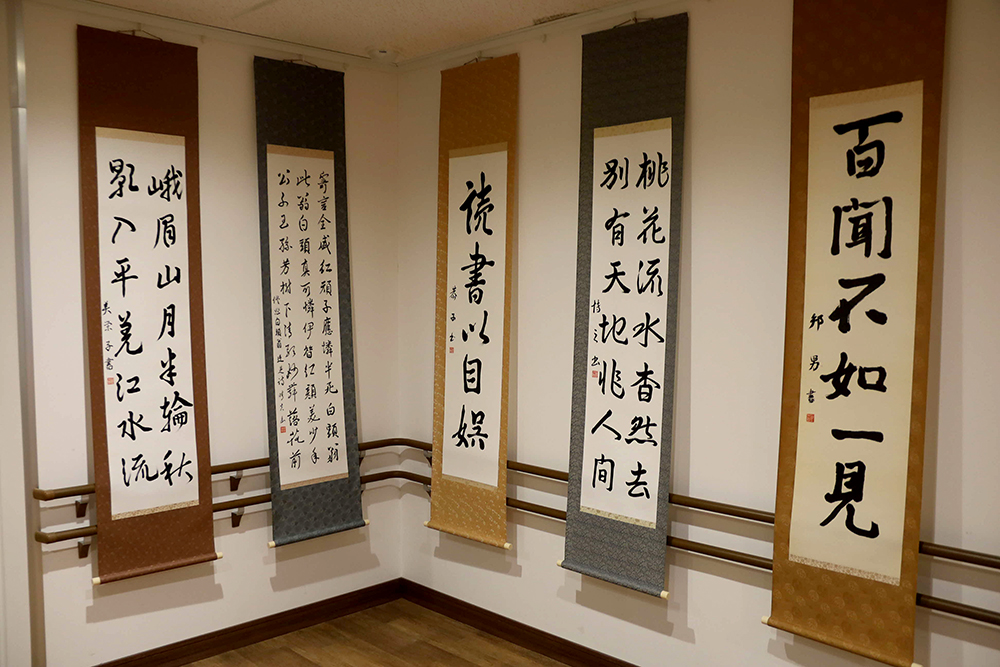 峨眉山月半輪秋
影入平羌江水流
寄言全盛紅顔子應憐半死白頭翁
此翁白頭真可憐伊昔紅顔美少年
公子王孫芳樹下清歌妙舞落花前
読書以自娯
桃花流水杳然去
別有天地非人間
百聞不如一見
邦男書